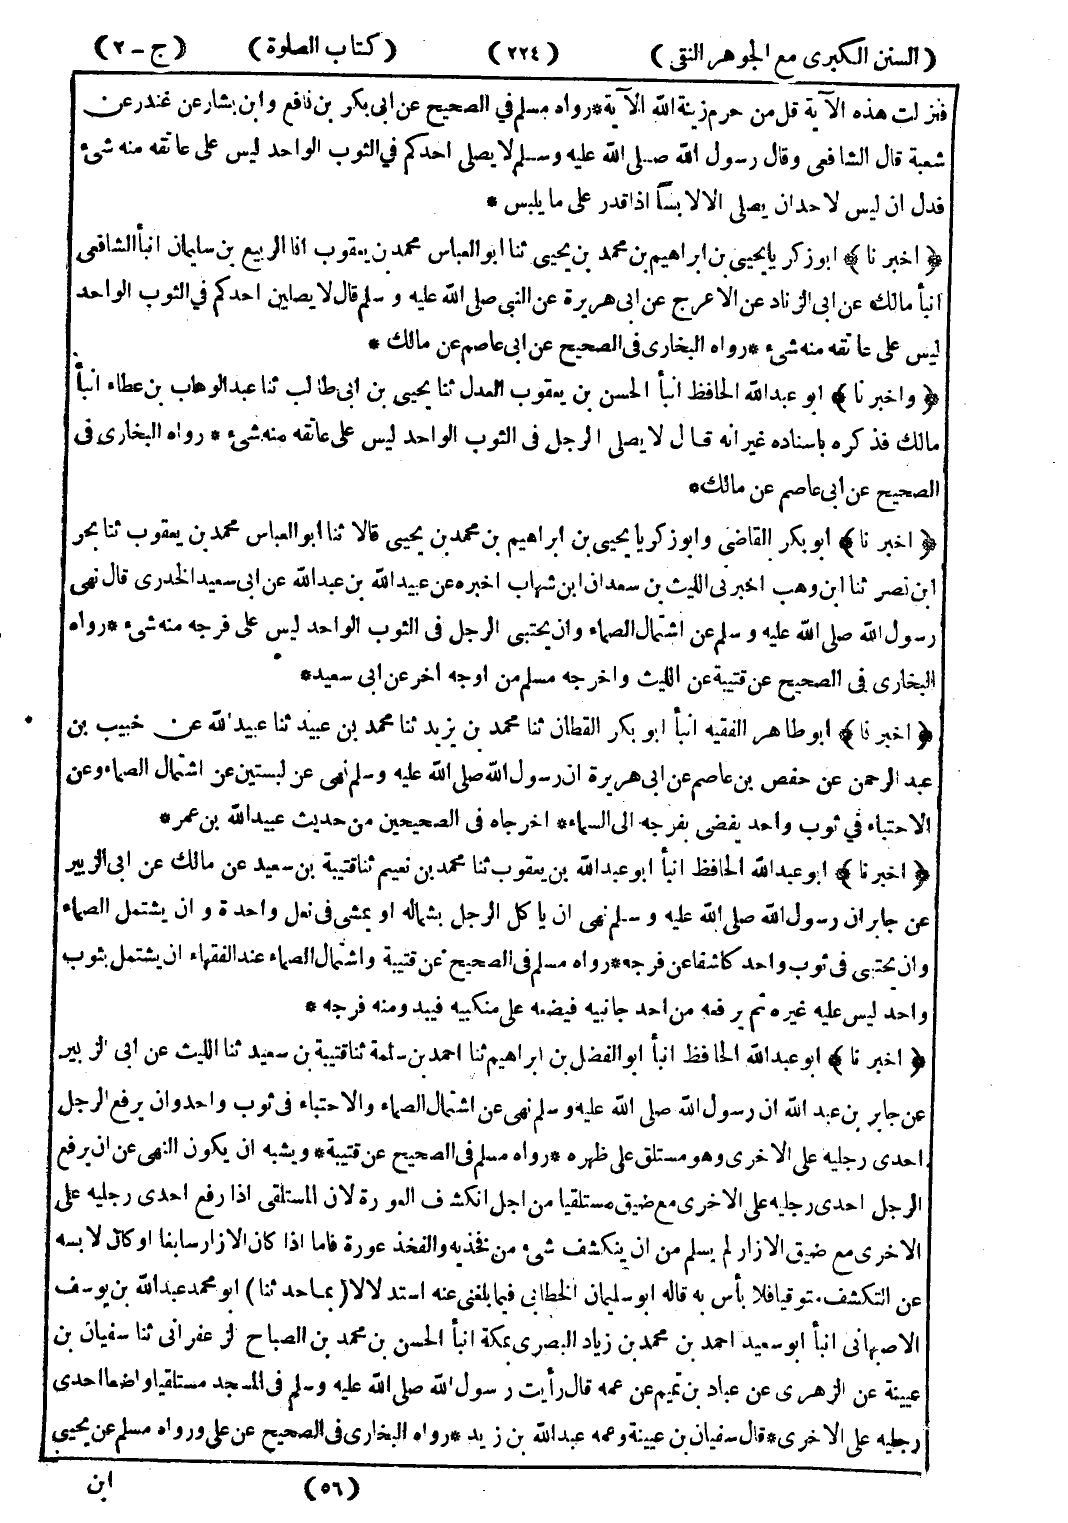 (السنن الكبرى مع الجوهر النقى) (٢٢٤) (كتاب الصلوة) (ج - ٢)
فنزلت هذه الآية قل من حرم زينة الله الآية * رواه مسلم في الصحيح عن ابى بكر بن نافع وابن بشار عن غندر عن
شعبة قال الشافعى وقال رسول الله صلى الله عليه وسلم لا يصلى احدكم في الثوب الواحد ليس على عاتقه منه شىء
فدل ان ليس لاحد ان يصلى الا لابسا اذا قدر على ما يلبس *
﴿ اخبرنا ﴾ ابو زكريا يحيى بن ابراهيم بن محمد بن يحيى ثنا ابو العباس محمد بن يعقوب انا الربيع بن سليمان انبأ الشافعى
انبأ مالك عن ابى الزناد عن الاعرج عن ابى هريرة عن النبى صلى الله عليه وسلم قال لا يصلين احدكم في الثوب الواحد
ليس على عاتقه منه شىء * رواه البخارى فى الصحيح عن ابى عاصم عن مالك *
﴿ واخبرنا ﴾ ابو عبدالله الحافظ انبأ الحسن بن يعقوب العدل ثنا يحيى بن ابى طالب ثنا عبدالوهاب بن عطاء انبأ
مالك فذكره باسناده غير انه قال لا يصلى الرجل فى الثوب الواحد ليس على عاتقه منه شىء * رواه البخارى فى
الصحيح عن ابى عاصم عن مالك *
﴿ اخبرنا ﴾ ابو بكر القاضى وابو زكريا يحيى بن ابراهيم بن محمد بن يحيى قالا ثنا ابو العباس محمد بن يعقوب ثنا بحر
ابن نصر ثنا ابن وهب اخبرنى الليث بن سعد ان ابن شهاب اخبره عن عبيدالله بن عبدالله عن ابى سعيد الخدرى قال نهى
رسول الله صلى الله عليه وسلم عن اشتمال الصماء وان يحتبى الرجل فى الثوب الواحد ليس على فرجه منه شىء * رواه
البخارى فى الصحيح عن قتيبة عن الليث واخرجه مسلم من اوجه اخر عن ابى سعيد *
﴿ اخبرنا ﴾ ابو طاهر الفقيه انبأ ابو بكر القطان ثنا محمد بن يزيد ثنا محمد بن عبيد ثنا عبيد الله عن خبيب بن
عبد الرحمن عن حفص بن عاصم عن ابى هريرة ان رسول الله صلى الله عليه وسلم نهى عن لبستين عن اشتمال الصماء وعن
الاحتباء في ثوب واحد يفضى بفرجه الى السماء * اخرجاه فى الصحيحين من حديث عبيدالله بن عمر *
﴿ اخبرنا ﴾ ابو عبدالله الحافظ انبأ ابو عبدالله بن يعقوب ثنا محمد بن نعيم ثنا قتيبة بن سعيد عن مالك عن ابى الزبير
عن جابر ان رسول الله صلى الله عليه وسلم نهى ان ياكل الرجل بشماله او يمشى فى نعل واحدة وان يشتمل الصماء
وان يحتبى فى ثوب واحد كاشفا عن فرجه * رواه مسلم فى الصحيح عن قتيبة واشتمال الصماء عند الفقهاء ان يشتمل بثوب
واحد ليس عليه غيره ثم يرفعه من احد جانبيه فيضعه على منكبيه فيبدو منه فرجه *
﴿ اخبرنا ﴾ ابو عبدالله الحافظ انبأ ابو الفضل بن ابراهيم ثنا احمد بن سلمة ثنا قتيبة بن سعيد ثنا الليث عن ابى الزبير
عن جابر بن عبد الله ان رسول الله صلى الله عليه وسلم نهى عن اشتمال الصماء والاحتباء فى ثوب واحد وان يرفع الرجل
احدى رجليه على الاخرى وهو مستلق على ظهره * رواه مسلم فى الصحيح عن قتيبة * ويشبه ان يكون النهى عن ان يرفع
الرجل احدى رجليه على الاخرى مع ضيق مستلقيا من اجل انكشف العورة لان المستلقى اذا رفع احدى رجليه على
الاخرى مع ضيق الازار لم يسلم من ان ينكشف شىء من فخذيه والفخذ عورة فاما اذا كان الازار سابغا او كان لابسه
عن التكشف متوقيا فلا بأس به قاله ابو سليمان الخطابى فيما بلغنى عنه استدلالا (بما حدثنا) ابو محمد عبدالله بن يوسف
الاصبهانى انبأ ابو سعيد احمد بن محمد بن زياد البصرى بمكة انبأ الحسن بن محمد بن الصباح الزعفرانى ثنا سفيان بن
عيينة عن الزهرى عن عباد بن تميم عن عمه قال رأيت رسول الله صلى الله عليه وسلم فى المسجد مستلقيا واضعا احدى
رجليه على الاخرى * قال سفيان بن عيينة وعمه عبدالله بن زيد * رواه البخارى فى الصحيح عن على ورواه مسلم عن يحيى
(٥٦) ابن